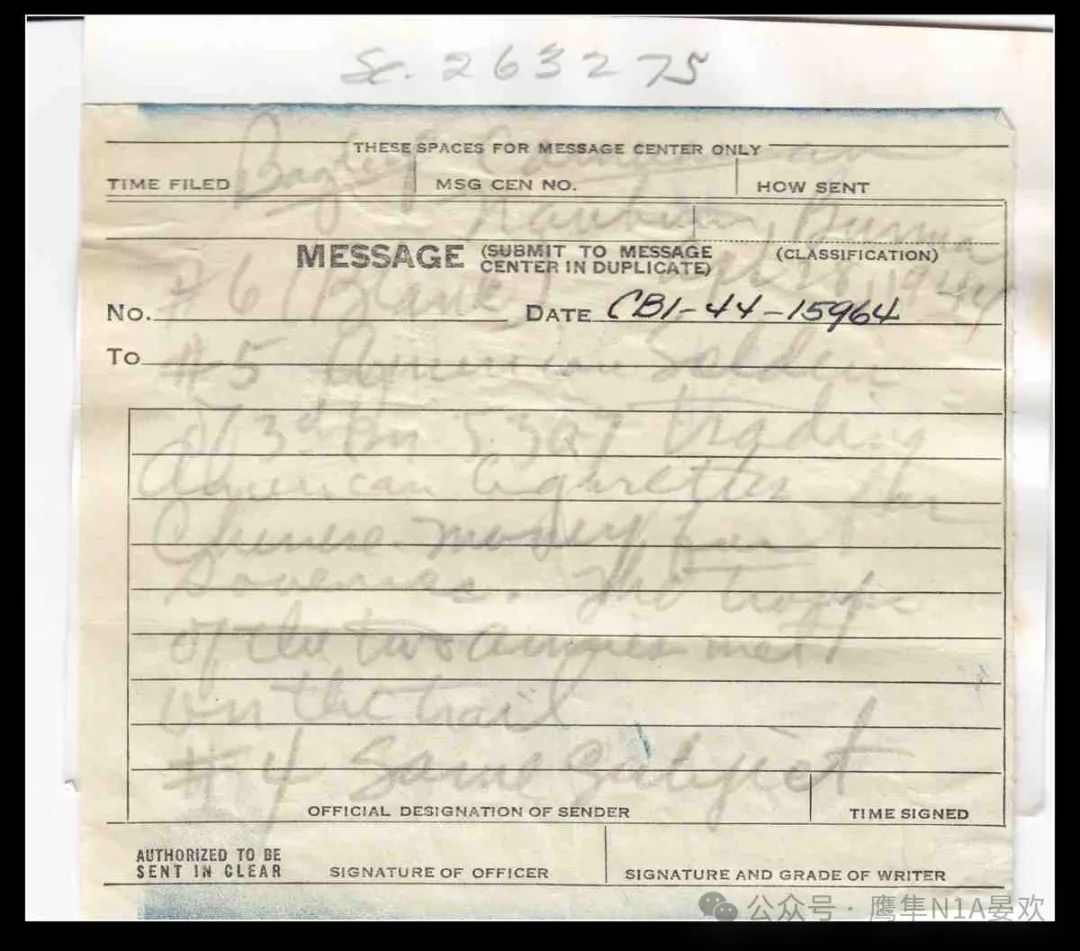 Sc. 263275
THESE SPACES FOR MESSAGE CENTER ONLY
TIME FILED
MSG CEN NO.
HOW SENT
Burma
MESSAGE (SUBMIT TO MESSAGE CENTER IN DUPLICATE)
(CLASSIFICATION)
#6 (Blank) 18, 1944
No.
DATE CBI-44-15964
To
#5 American Soldier
of 3d Bn 5307 trading
American Cigarettes for
Chinese money for
Souvenirs. The troops
of the two armies met
on the trail
#4 Same Subject
OFFICIAL DESIGNATION OF SENDER
TIME SIGNED
AUTHORIZED TO BE
SENT IN CLEAR
SIGNATURE OF OFFICER
SIGNATURE AND GRADE OF WRITER
公众号 · 鹰隼N1A晏欢